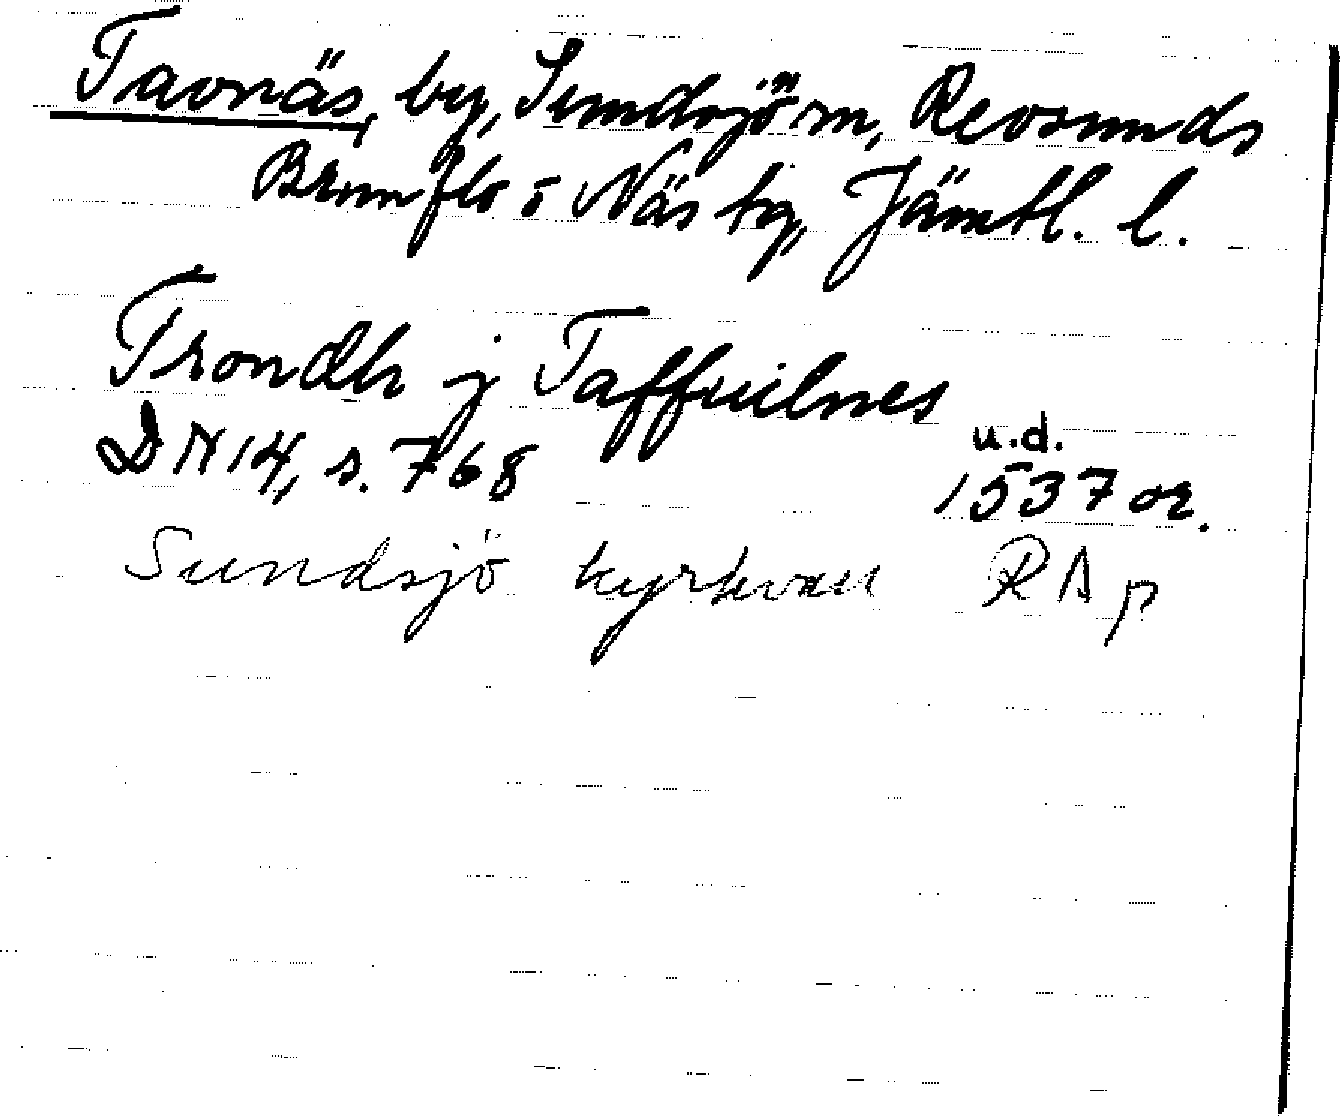 Tavnäs, by, Sundsjö sn, Revsunds
Brunflo o Näs tg, Jämtl. l.
Trondh j Taffuilnes
DN 14, s. 768
u.d.
1537 or.
Sundsjö kyrkvall RAp